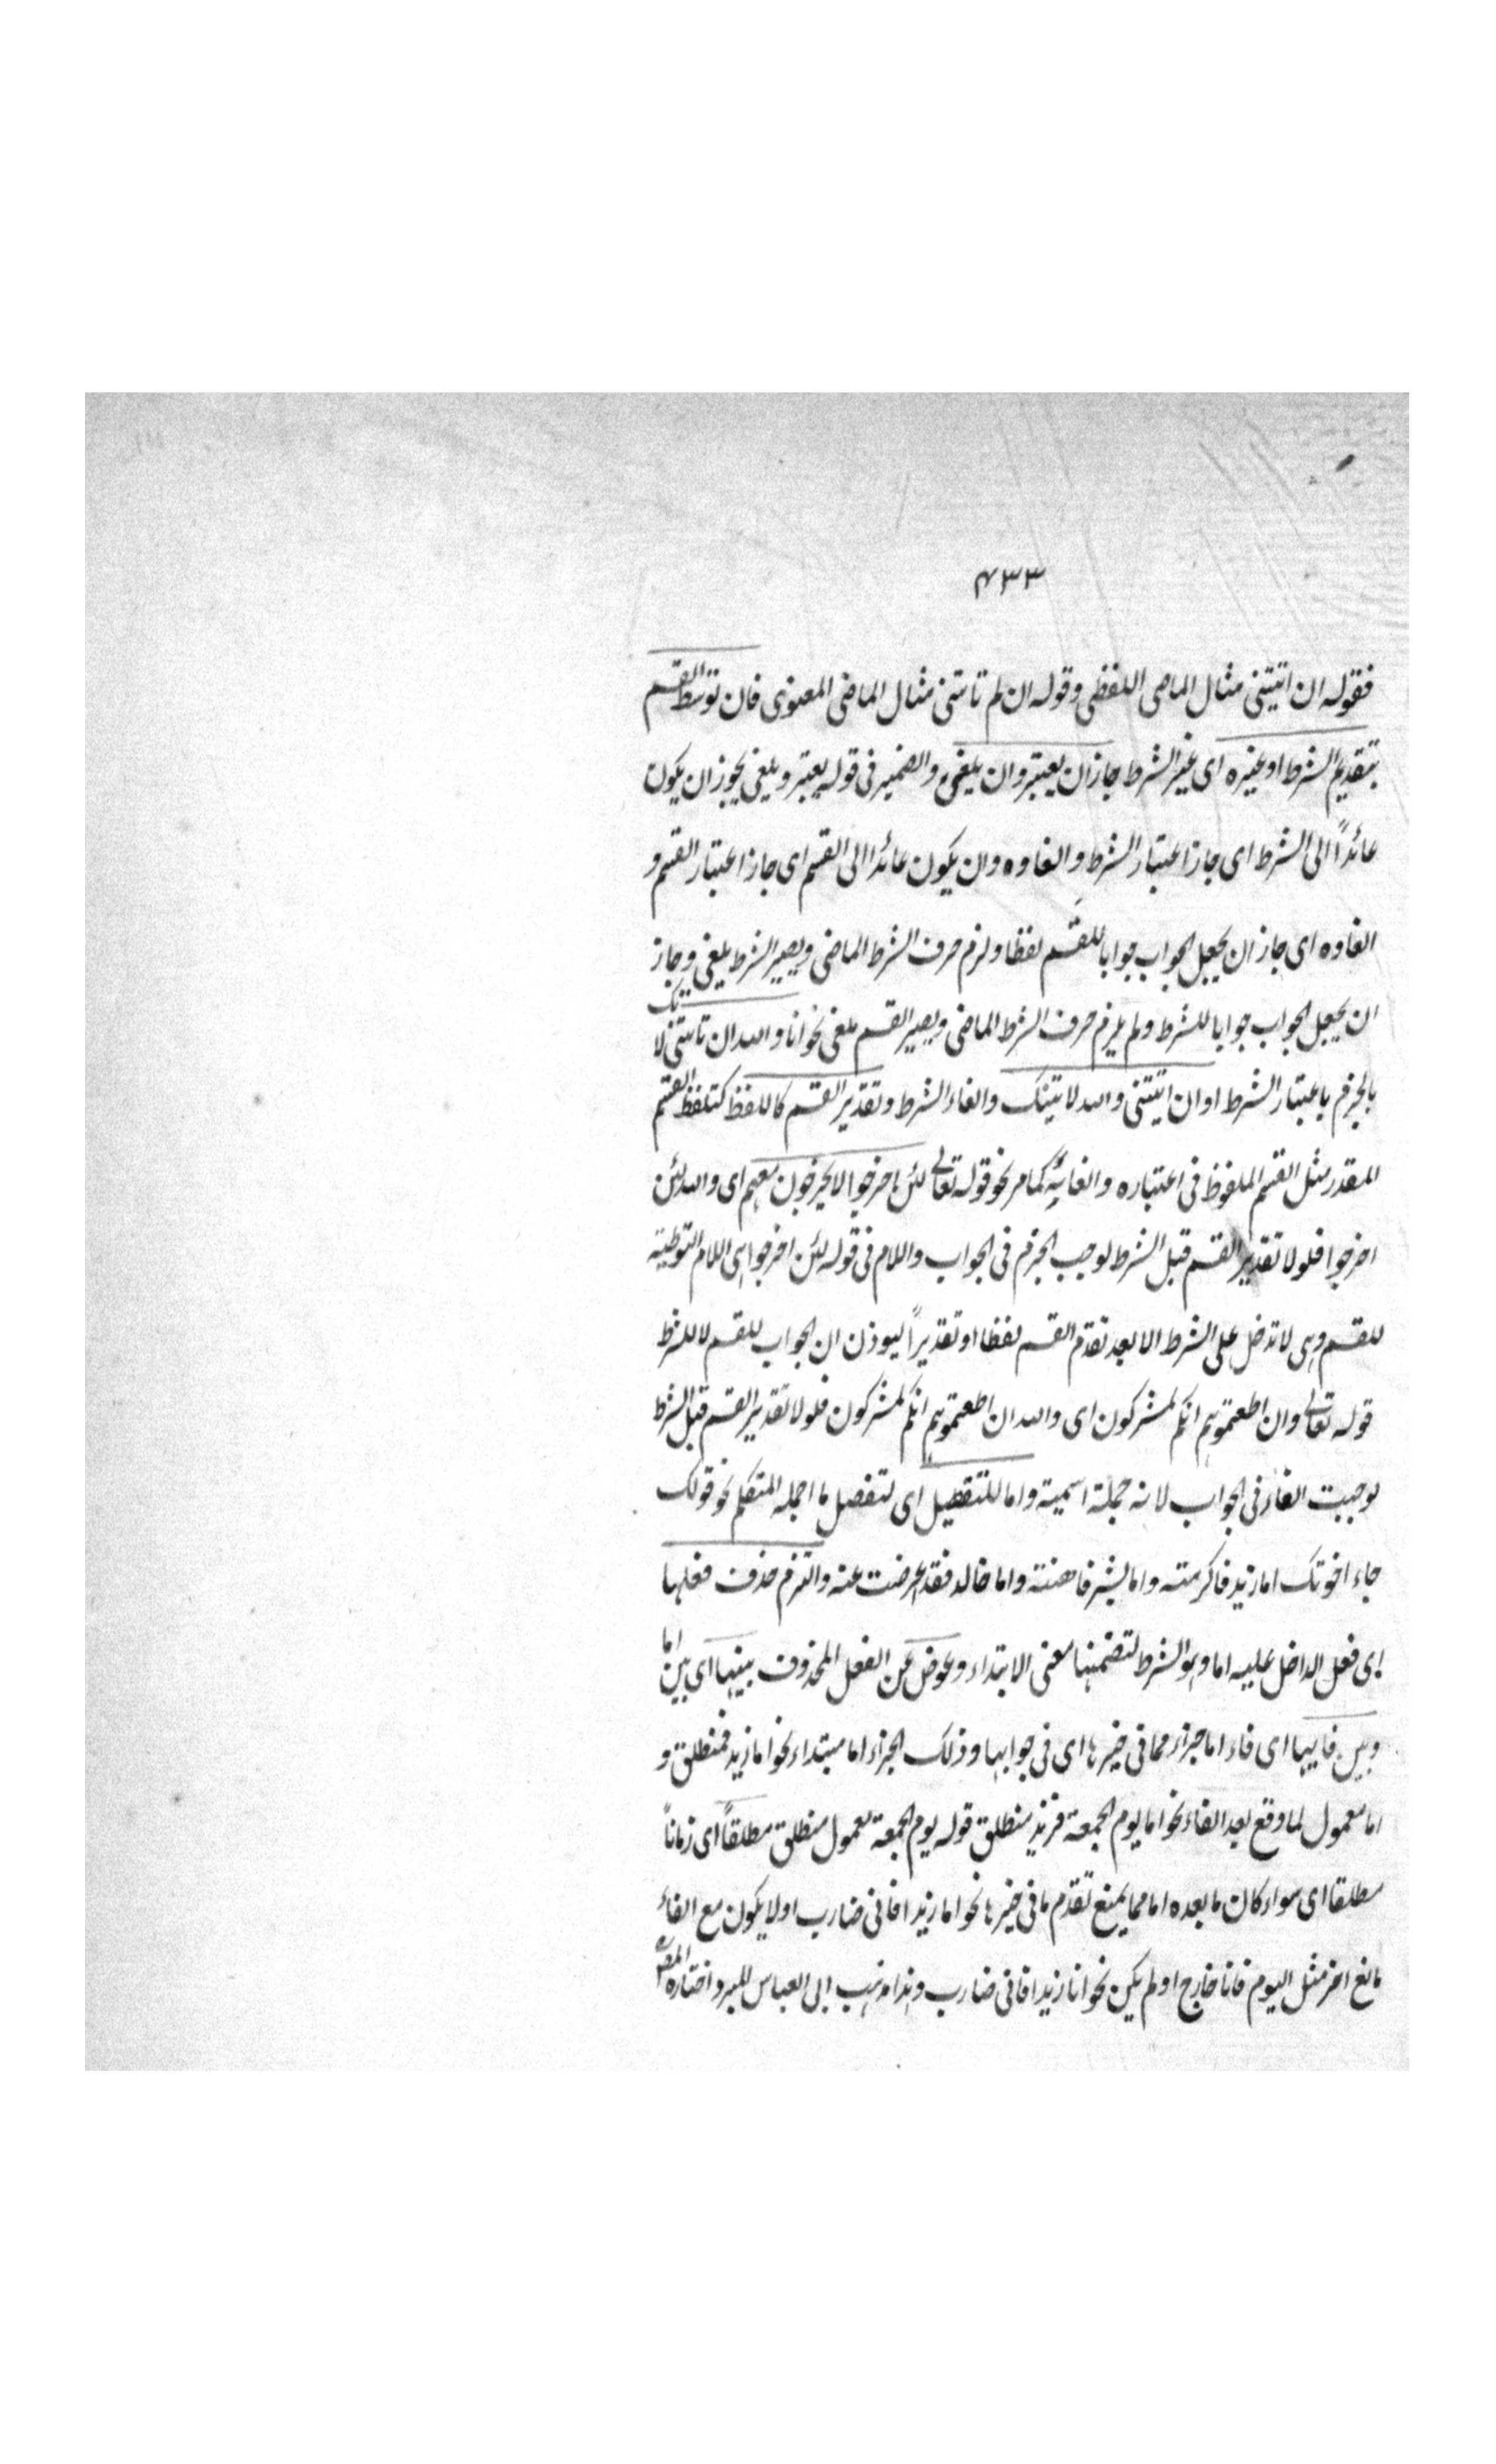 ٤٣٣
فقوله ان اتيتنى مثال الماضى اللفظى وقوله ان لم تاتنى مثال الماضى المعنوى فان توسط القسم
بتقديم الشرط او غيره اى غير الشرط جاز ان يعتبر وان يلغى والضمير فى قوله يعتبر ويلغى يجوز ان يكون
عائداً الى الشرط اى جاز اعتبار الشرط والغاوه وان يكون عائدا الى القسم اى جاز اعتبار القسم و
الغاوه اى جاز ان يجعل الجواب جوابا للقسم لفظا ولزم حرف الشرط الماضى ويصير الشرط يلغى وجاز
ان يجعل الجواب جوابا للشرط ولم يلزم حرف الشرط الماضى ويصير القسم ملغى نحو انا والله ان تاتنى لا تيك
بالجزم باعتبار الشرط او ان اتيتنى والله لاتينك والغاء الشرط وتقدير القسم كاللفظ كتلفظ القسم
المقدر مثل القسم الملفوظ فى اعتباره والغائه كما مر نحو قوله تعالى لئن اخرجوا لا يخرجون معهم اى والله لئن
اخرجوا فلولا تقدير القسم قبل الشرط لوجب الجزم فى الجواب واللام فى قوله لئن اخرجوا هى اللام التوطية
للقسم وهى لا تدخل على الشرط الا بعد تقدم القسم لفظا او تقديراً ليوذن ان الجواب للقسم لا للشرط
قوله تعالى وان اطعتموهم انكم لمشركون اى والله ان اطعتموهم انكم لمشركون فلولا تقدير القسم قبل الشرط
لوجبت الفاء فى الجواب لانه جملة اسمية واما للتفصيل اى لتفصل ما اجمله المتكلم نحو قولك
جاء اخوتك اما زيد فاكرمته واما بشر فاهنته واما خالد فقد اعرضت عنه والتزم حذف فعلها
اى فعل الداخل عليه اما وهو الشرط لتضمنها معنى الابتداء وعوض عن الفعل المحذوف بينها اى بين اما
وبين فايها اى فاء اما جزء مما فى خيرها اى فى جوابها وذلك الجزء اما مبتداء نحو اما زيد فمنطلق و
اما معمول لما وقع بعد الفاء نحو اما يوم الجمعة فزيد منطلق قوله يوم الجمعة معمول منطلق مطلقاً اى زماناً
مطلقا اى سواء كان ما بعده اما مما يمنع تقدم ما فى خيرها نحو اما زيدا فانى ضارب او لا يكون مع الفاء
مانع اخر مثل اليوم فانا خارج او لم يكن نحو انا زيدا فانى ضارب وهذا مذهب ابى العباس المبرد اختاره المص